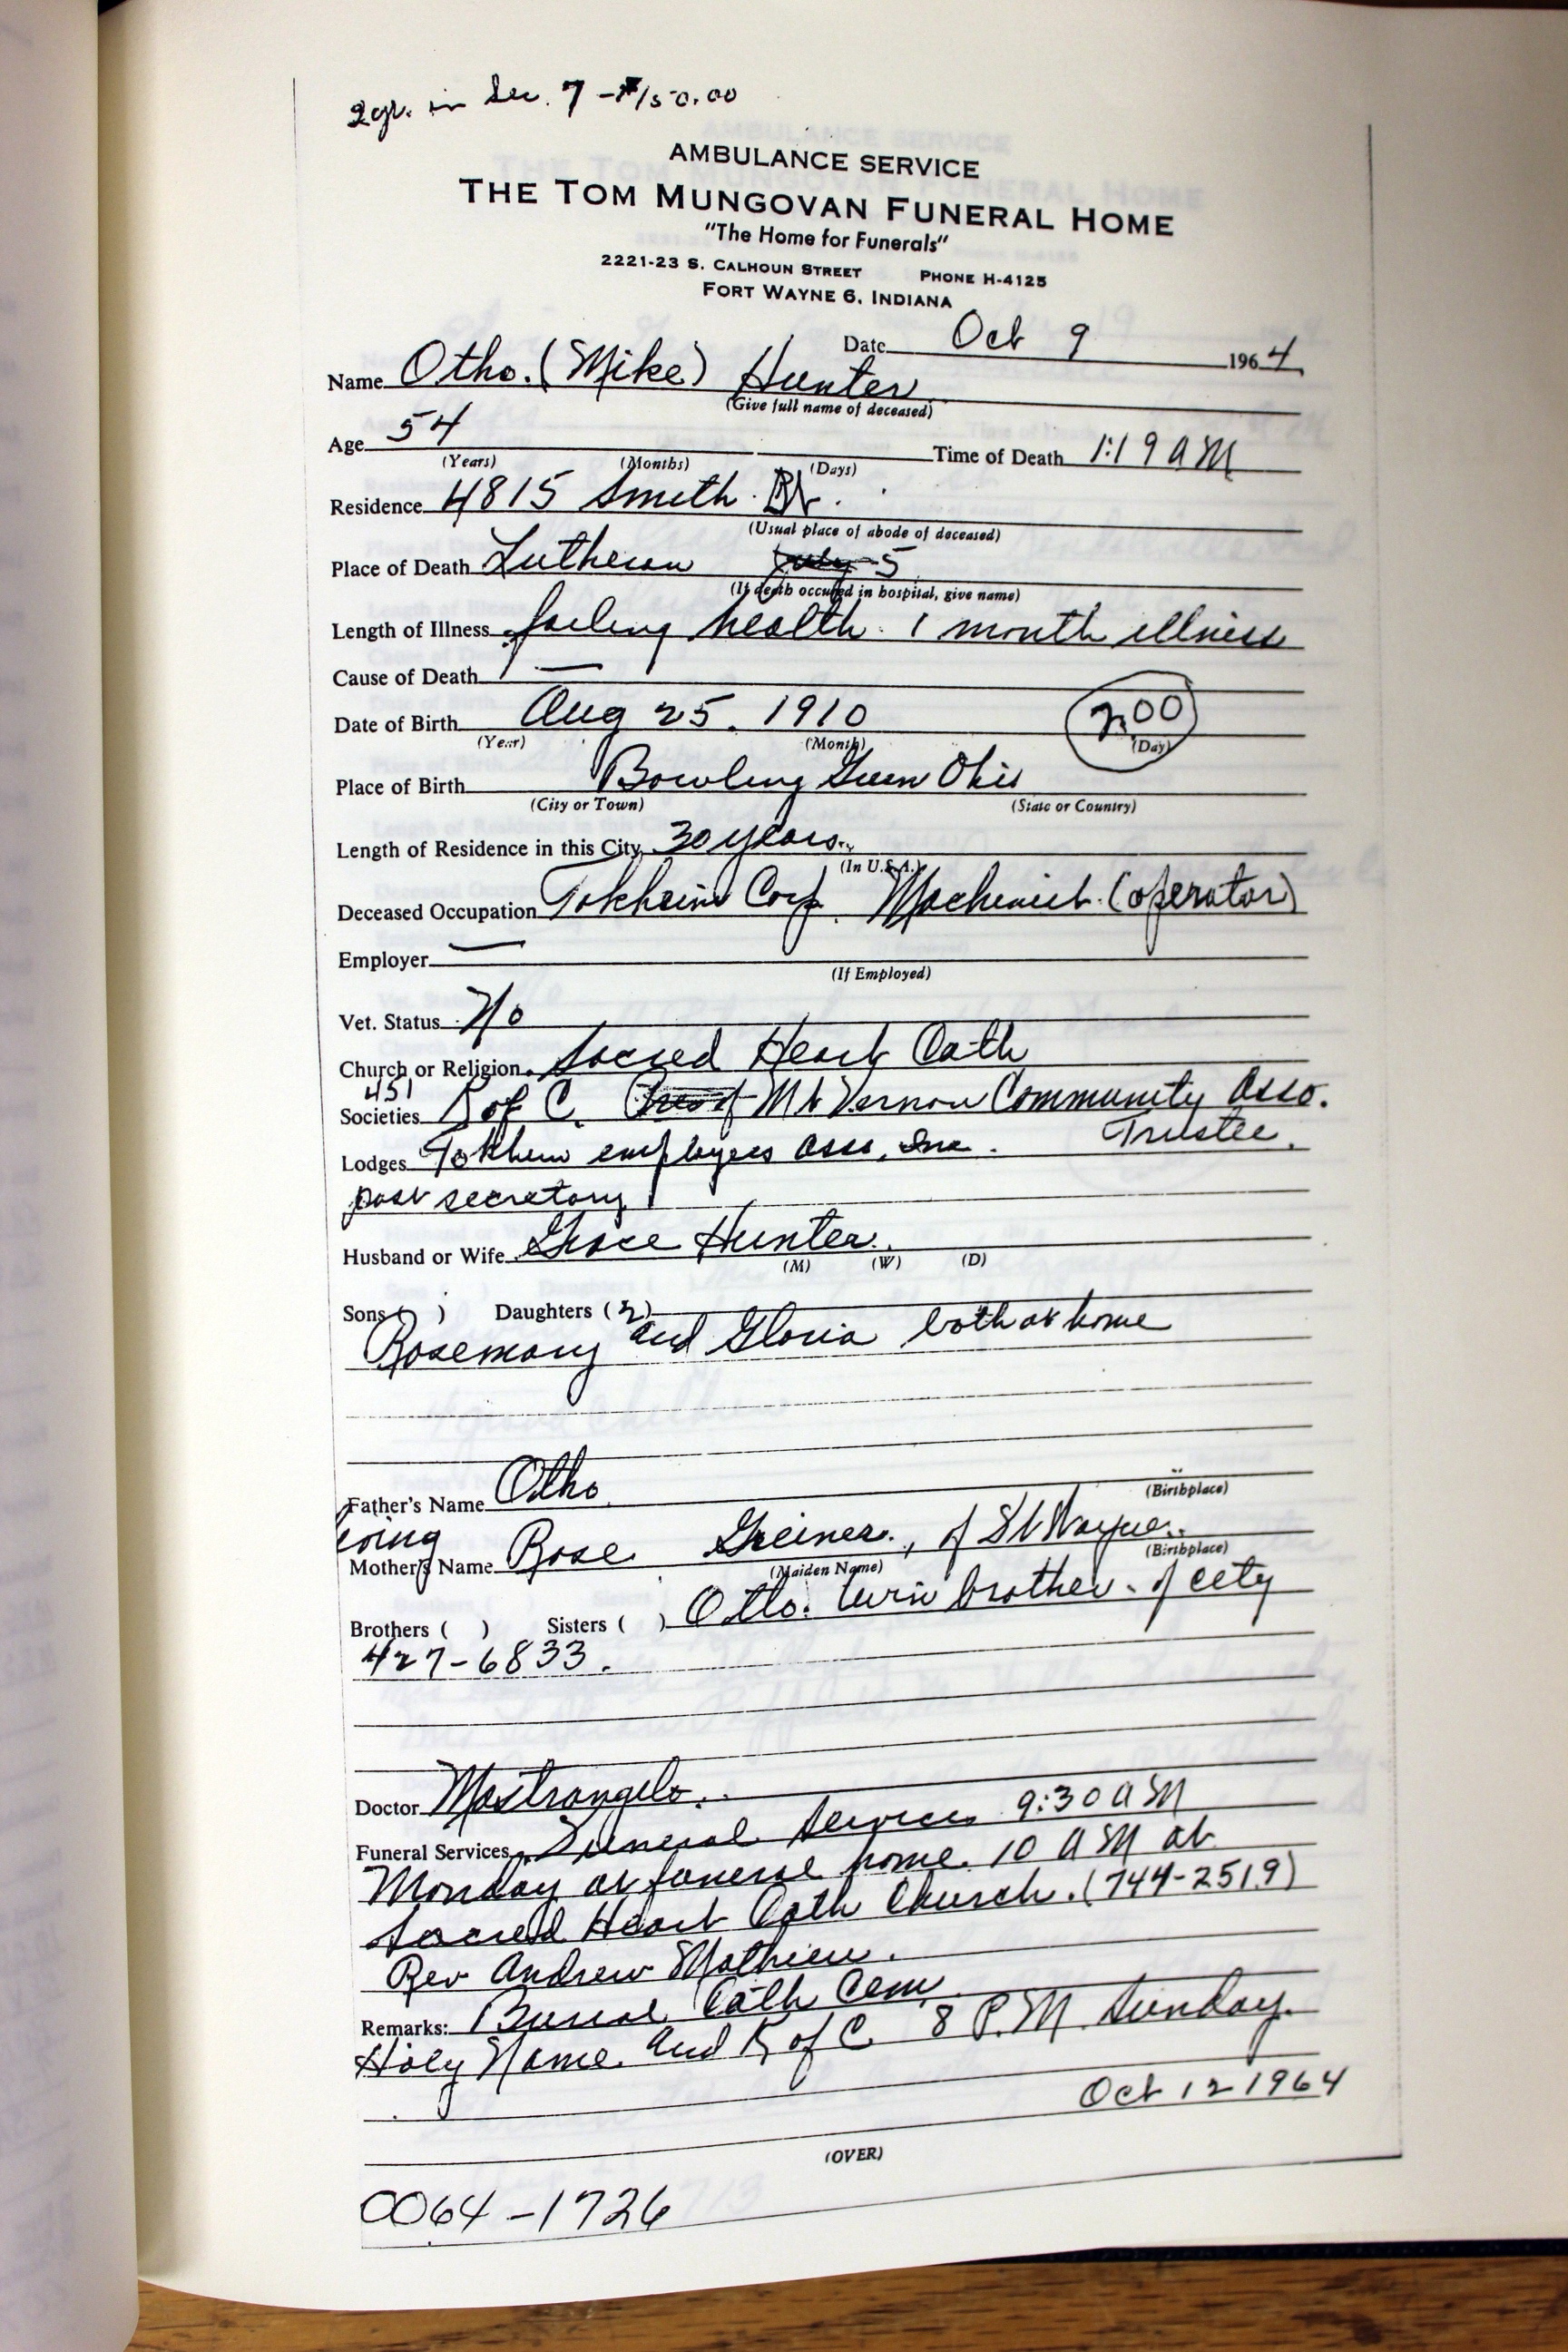 2 gr. in Sec. 7 - $150.00
AMBULANCE SERVICE
THE TOM MUNGOVAN FUNERAL HOME
"The Home for Funerals"
2221-23 S. CALHOUN STREET PHONE H-4125
FORT WAYNE 6, INDIANA
Date Oct 9 1964
Name Otho. (Mike) Hunter
(Give full name of deceased)
Age 54 Time of Death 1:19 AM
(Years) (Months) (Days)
Residence 4815 Smith St.
(Usual place of abode of deceased)
Place of Death Lutheran 5
(If death occured in hospital, give name)
Length of Illness failing health. 1 month illness
Cause of Death —
Date of Birth Aug 25. 1910 2.00
(Year) (Month) (Day)
Place of Birth Bowling Green Ohio
(City or Town) (State or Country)
Length of Residence in this City 30 years.
(In U.S.A.)
Deceased Occupation Tokheim Corp. Machinist. (operator)
Employer —
(If Employed)
Vet. Status No
Church or Religion Sacred Heart Cath
451
Societies K of C. Pres of Mt Vernon Community Asso.
Lodges Tokheim employees Asso, Inc. Trustee.
past secretary
Husband or Wife Grace Hunter.
(M) (W) (D)
Sons ( ) Daughters (2)
Rosemary and Gloria both at home
Father's Name Otho
(Birthplace)
living
Mother's Name Rose Greiner., of Ft Wayne.
(Maiden Name) (Birthplace)
Brothers ( ) Sisters ( ) Otto. twin brother. of city
427-6833.
Doctor Mastrangelo.
Funeral Services Funeral Services 9:30 AM
Monday at funeral home. 10 AM at
Sacred Heart Cath Church. (744-2519)
Rev Andrew Mathieu.
Remarks: Burial Cath Cem.
Holy Name and K of C. 8 P.M. Sunday.
Oct 12 1964
(OVER)
0064-1726